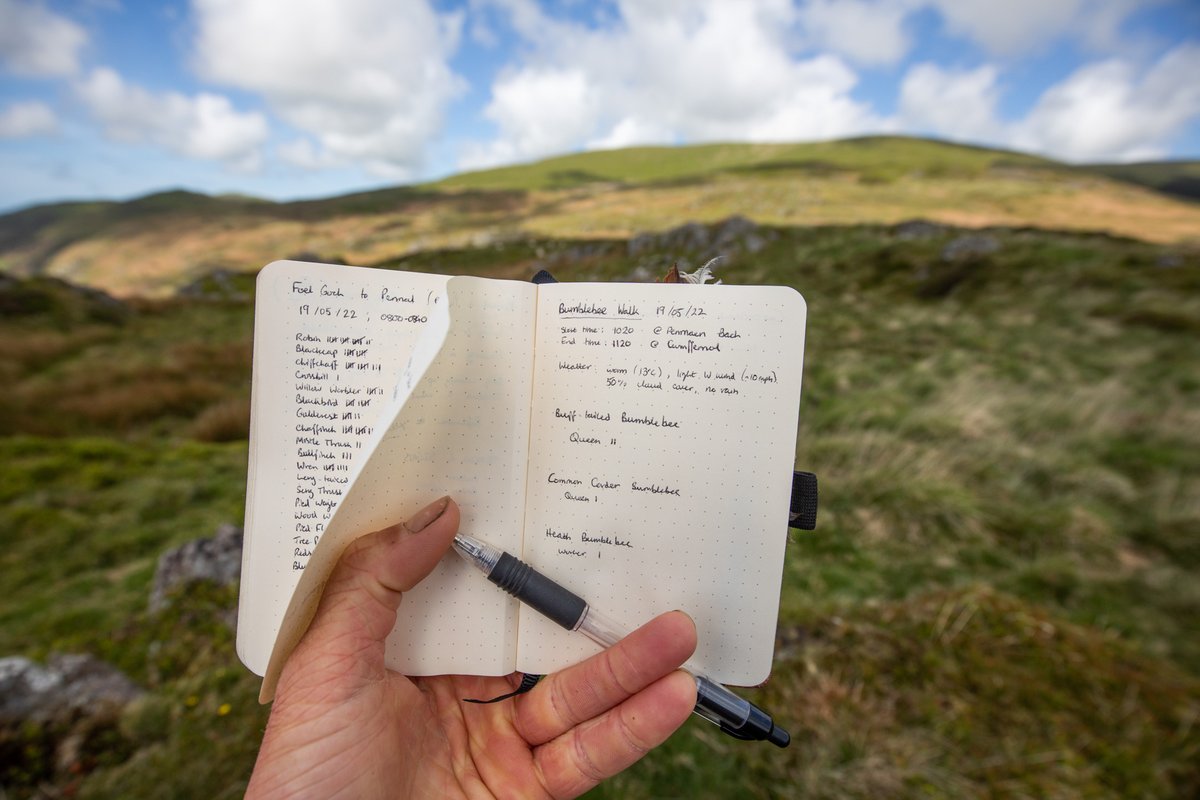 Foel Goch to Pennal (
19/05/22, 0800-0840
Robin
Blackcap
Chiffchaff
Crossbill I
Willow Warbler
Blackbird
Goldcrest
Chaffinch
Mistle Thrush II
Bullfinch III
Wren
Long-tailed
Song Thrus
Pied Wagta
Wood W
Pied Fl
Tree P
Reds
Blu
Bumblebee Walk 19/05/22
Start time: 1020 @ Penmaen Bach
End time: 1120 @
Weather: warm (13°C), light W wind (~10mph)
50% cloud cover, no rain
Buff-tailed Bumblebee
Queen II
Common Carder Bumblebee
Queen I
Heath Bumblebee
Worker I